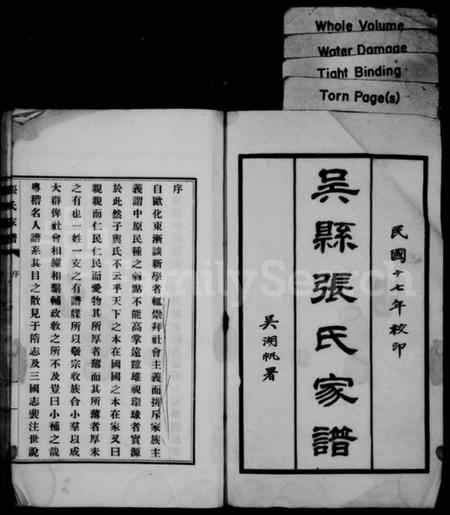 Whole Volume
Water Damage
Tight Binding
Torn Page(s)
民國十七年校印
吳縣張氏家譜
吳湖帆署
序
自歐化東漸談新學者輒崇拜社會主義而排斥家族主
義謂中原民種之弱點不能高掌遠蹠雄視環球者實源
於此然子輿氏不云乎天下之本在國國之本在家又曰
親親而仁民仁民而愛物其所厚者薄而其所薄者厚未
之有也一姓一支之有譜牒所以敬宗收族合小羣以成
大羣俾社會相維相繫輔政敎之所不及豈曰小補之哉
粵稽名人譜系其目之散見于隋志及三國志裴注世說
張氏家譜
序
FamilySearch